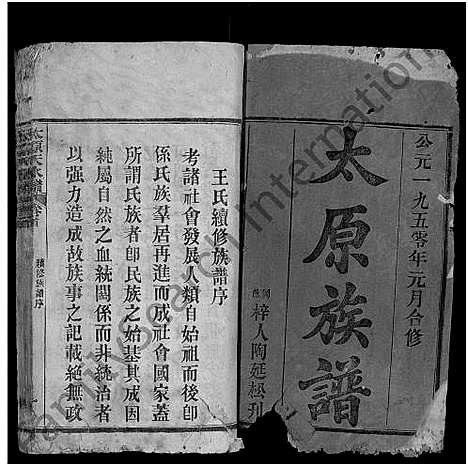 公元一九五零年元月合修
太原族譜
梓人陶延松刊
王氏續修族譜序
考諸社會發展人類自始祖而後即
係氏族羣居再進而成社會國家蓋
所謂氏族者即民族之始基其成因
純屬自然之血統關係而非統治者
以強力造成故族事之記載絕無政
續修族譜序
FamilySearch International